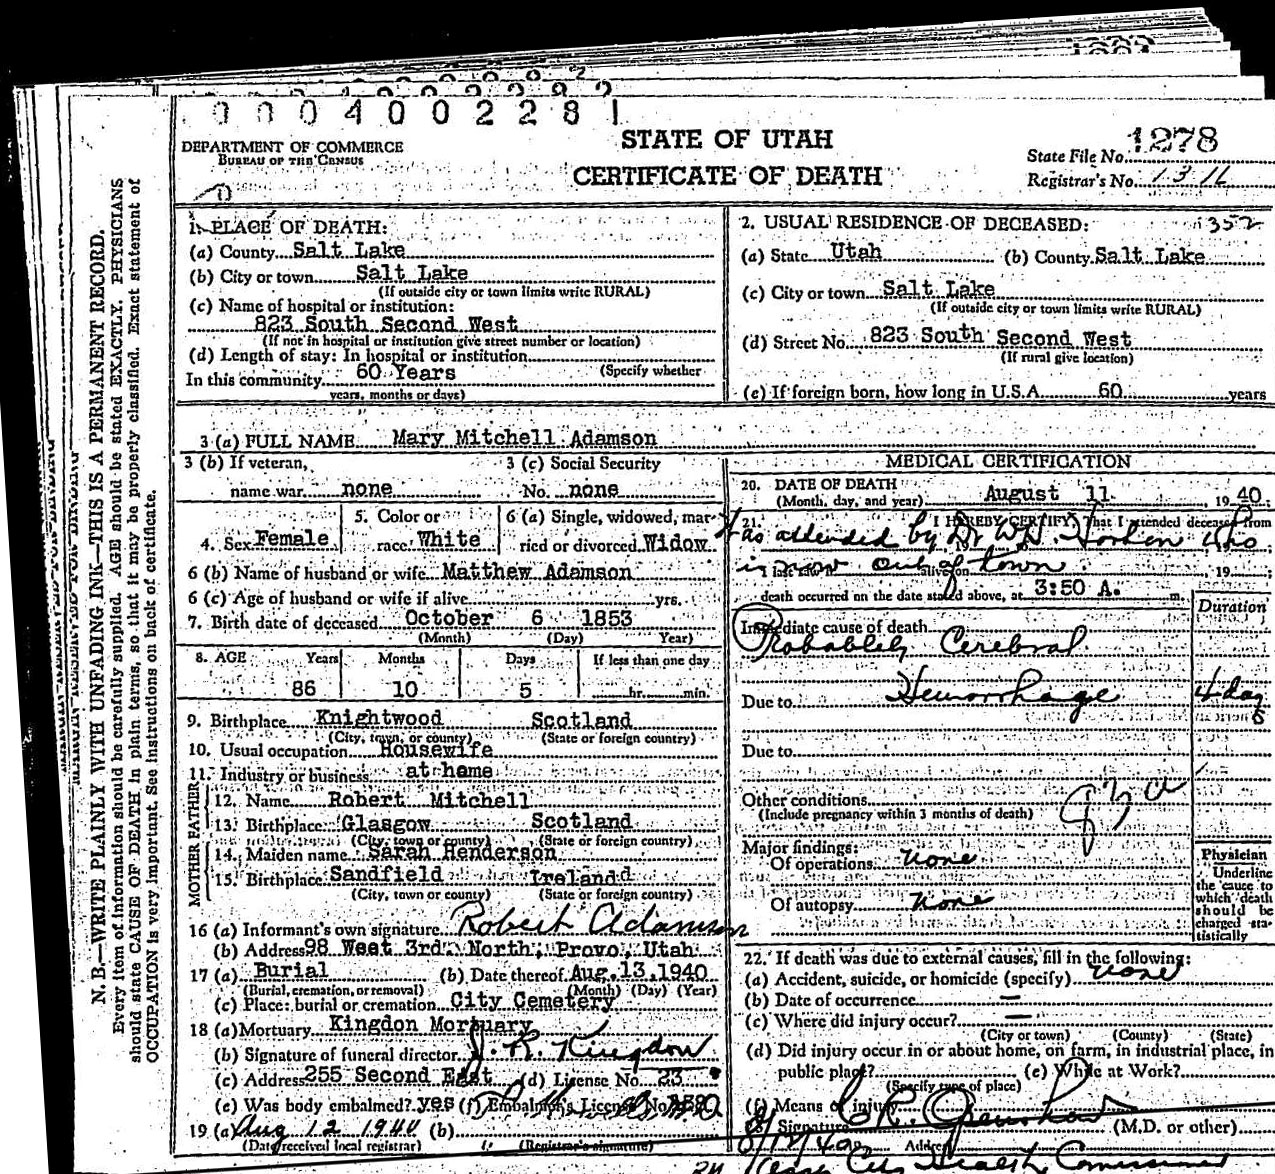 00040022281
DEPARTMENT OF COMMERCE
BUREAU OF THE CENSUS
STATE OF UTAH
CERTIFICATE OF DEATH
State File No. 1278
Registrar's No. 1316
N. B.—WRITE PLAINLY WITH UNFADING INK—THIS IS A PERMANENT RECORD.
Every item of information should be carefully supplied. AGE should be stated EXACTLY. PHYSICIANS
should state CAUSE OF DEATH in plain terms, so that it may be properly classified. Exact statement of
OCCUPATION is very important. See instructions on back of certificate.
1. PLACE OF DEATH:
(a) County Salt Lake
(b) City or town Salt Lake
(If outside city or town limits write RURAL)
(c) Name of hospital or institution:
823 South Second West
(If not in hospital or institution give street number or location)
(d) Length of stay: In hospital or institution
(Specify whether
In this community 60 Years
years, months or days)
2. USUAL RESIDENCE OF DECEASED: 352
(a) State Utah (b) County Salt Lake
(c) City or town Salt Lake
(If outside city or town limits write RURAL)
(d) Street No. 823 South Second West
(If rural give location)
(e) If foreign born, how long in U.S.A. 60 years
3 (a) FULL NAME Mary Mitchell Adamson
3 (b) If veteran, 3 (c) Social Security
name war none No. none
4. Sex Female 5. Color or race White 6 (a) Single, widowed, married or divorced Widow
6 (b) Name of husband or wife Matthew Adamson
6 (c) Age of husband or wife if alive yrs.
7. Birth date of deceased October 6 1853
(Month) (Day) Year)
8. AGE Years Months Days If less than one day
86 10 5 hr. min.
9. Birthplace Knightwood Scotland
(City, town, or county) (State or foreign country)
10. Usual occupation Housewife
11. Industry or business at home
FATHER
12. Name Robert Mitchell
13. Birthplace Glasgow Scotland
(City, town or county) (State or foreign country)
MOTHER
14. Maiden name Sarah Henderson
15. Birthplace Sandfield Ireland
(City, town or county) (State or foreign country)
16 (a) Informant's own signature Robert Adamson
(b) Address 98 West 3rd North, Provo, Utah
17 (a) Burial (b) Date thereof Aug. 13, 1940
(Burial, cremation, or removal) (Month) (Day) (Year)
(c) Place: burial or cremation City Cemetery
18 (a) Mortuary Kingdon Mortuary
(b) Signature of funeral director J. R. Kingdon
(c) Address 255 Second East (d) License No. 23
(e) Was body embalmed? yes (f) Embalmer's License No.
19 (a) Aug 12 1940 (b)
(Date received local registrar) (Registrar's signature)
MEDICAL CERTIFICATION
20. DATE OF DEATH
(Month, day, and year) August 11 1940
21. I HEREBY CERTIFY, That I attended deceased from
was attended by Dr W H who
is now out of town
19
death occurred on the date stated above, at 3:50 A. m.
Duration
Immediate cause of death
Probably Cerebral
Due to Hemorrhage 4 days
Due to
Other conditions
(Include pregnancy within 3 months of death)
Major findings:
Of operations none
Of autopsy none
Physician
Underline
the cause to
which death
should be
charged sta-
tistically
22. If death was due to external causes, fill in the following:
(a) Accident, suicide, or homicide (specify) none
(b) Date of occurrence —
(c) Where did injury occur? —
(City or town) (County) (State)
(d) Did injury occur in or about home, on farm, in industrial place, in
public place? (e) While at Work?
(Specify type of place)
(f) Means of injury
Signature (M.D. or other)
8/12/40 Address
City Health Commissioner